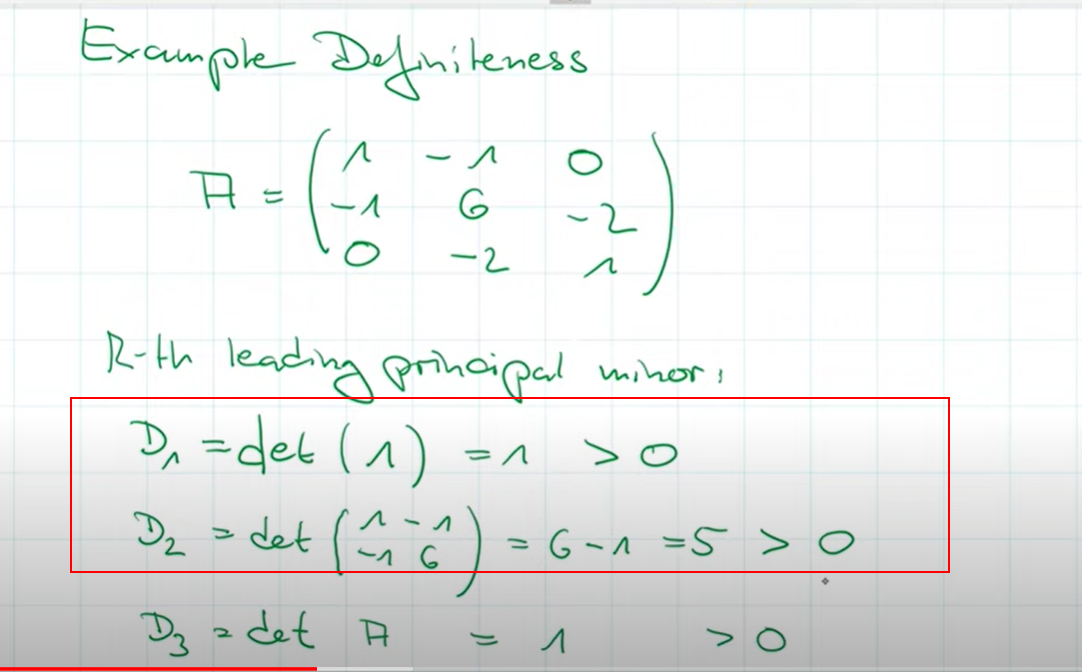 Example Definiteness
A = ( 1 -1 0
-1 6 -2
0 -2 1 )
k-th leading principal minor:
D₁ = det (1) = 1 > 0
D₂ = det ( 1 -1
-1 6 ) = 6 - 1 = 5 > 0
D₃ = det A = 1 > 0